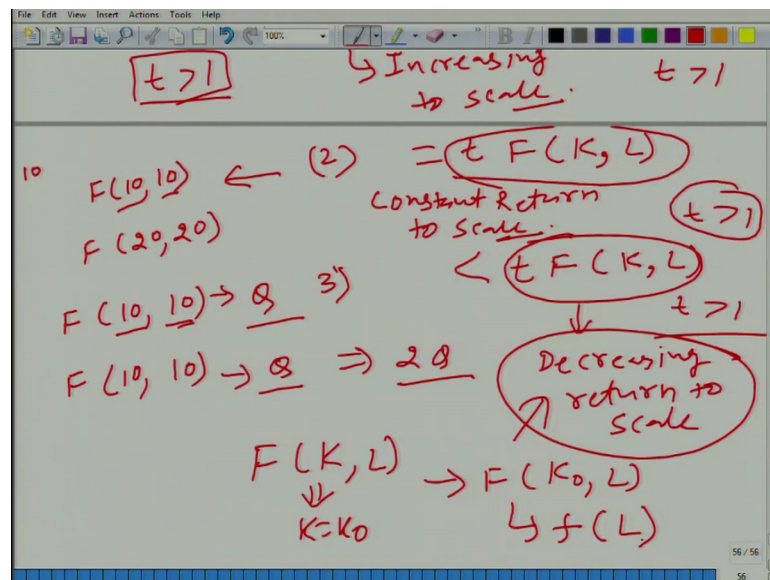 File Edit View Insert Actions Tools Help
100%
B I
t > 1
↳ Increasing
to scale.
t > 1
10
F(10,10) ← (2) = t F(K, L)
Constant Return
to scale.
t > 1
F (20,20)
< t F (K, L)
t > 1
F (10, 10) → Q 3)
F (10, 10) → Q ⇒ 2Q
Decreasing
return to
scale
F(K, L) → F(K0, L)
⇓
K=K0
↳ f(L)
56 / 56
56